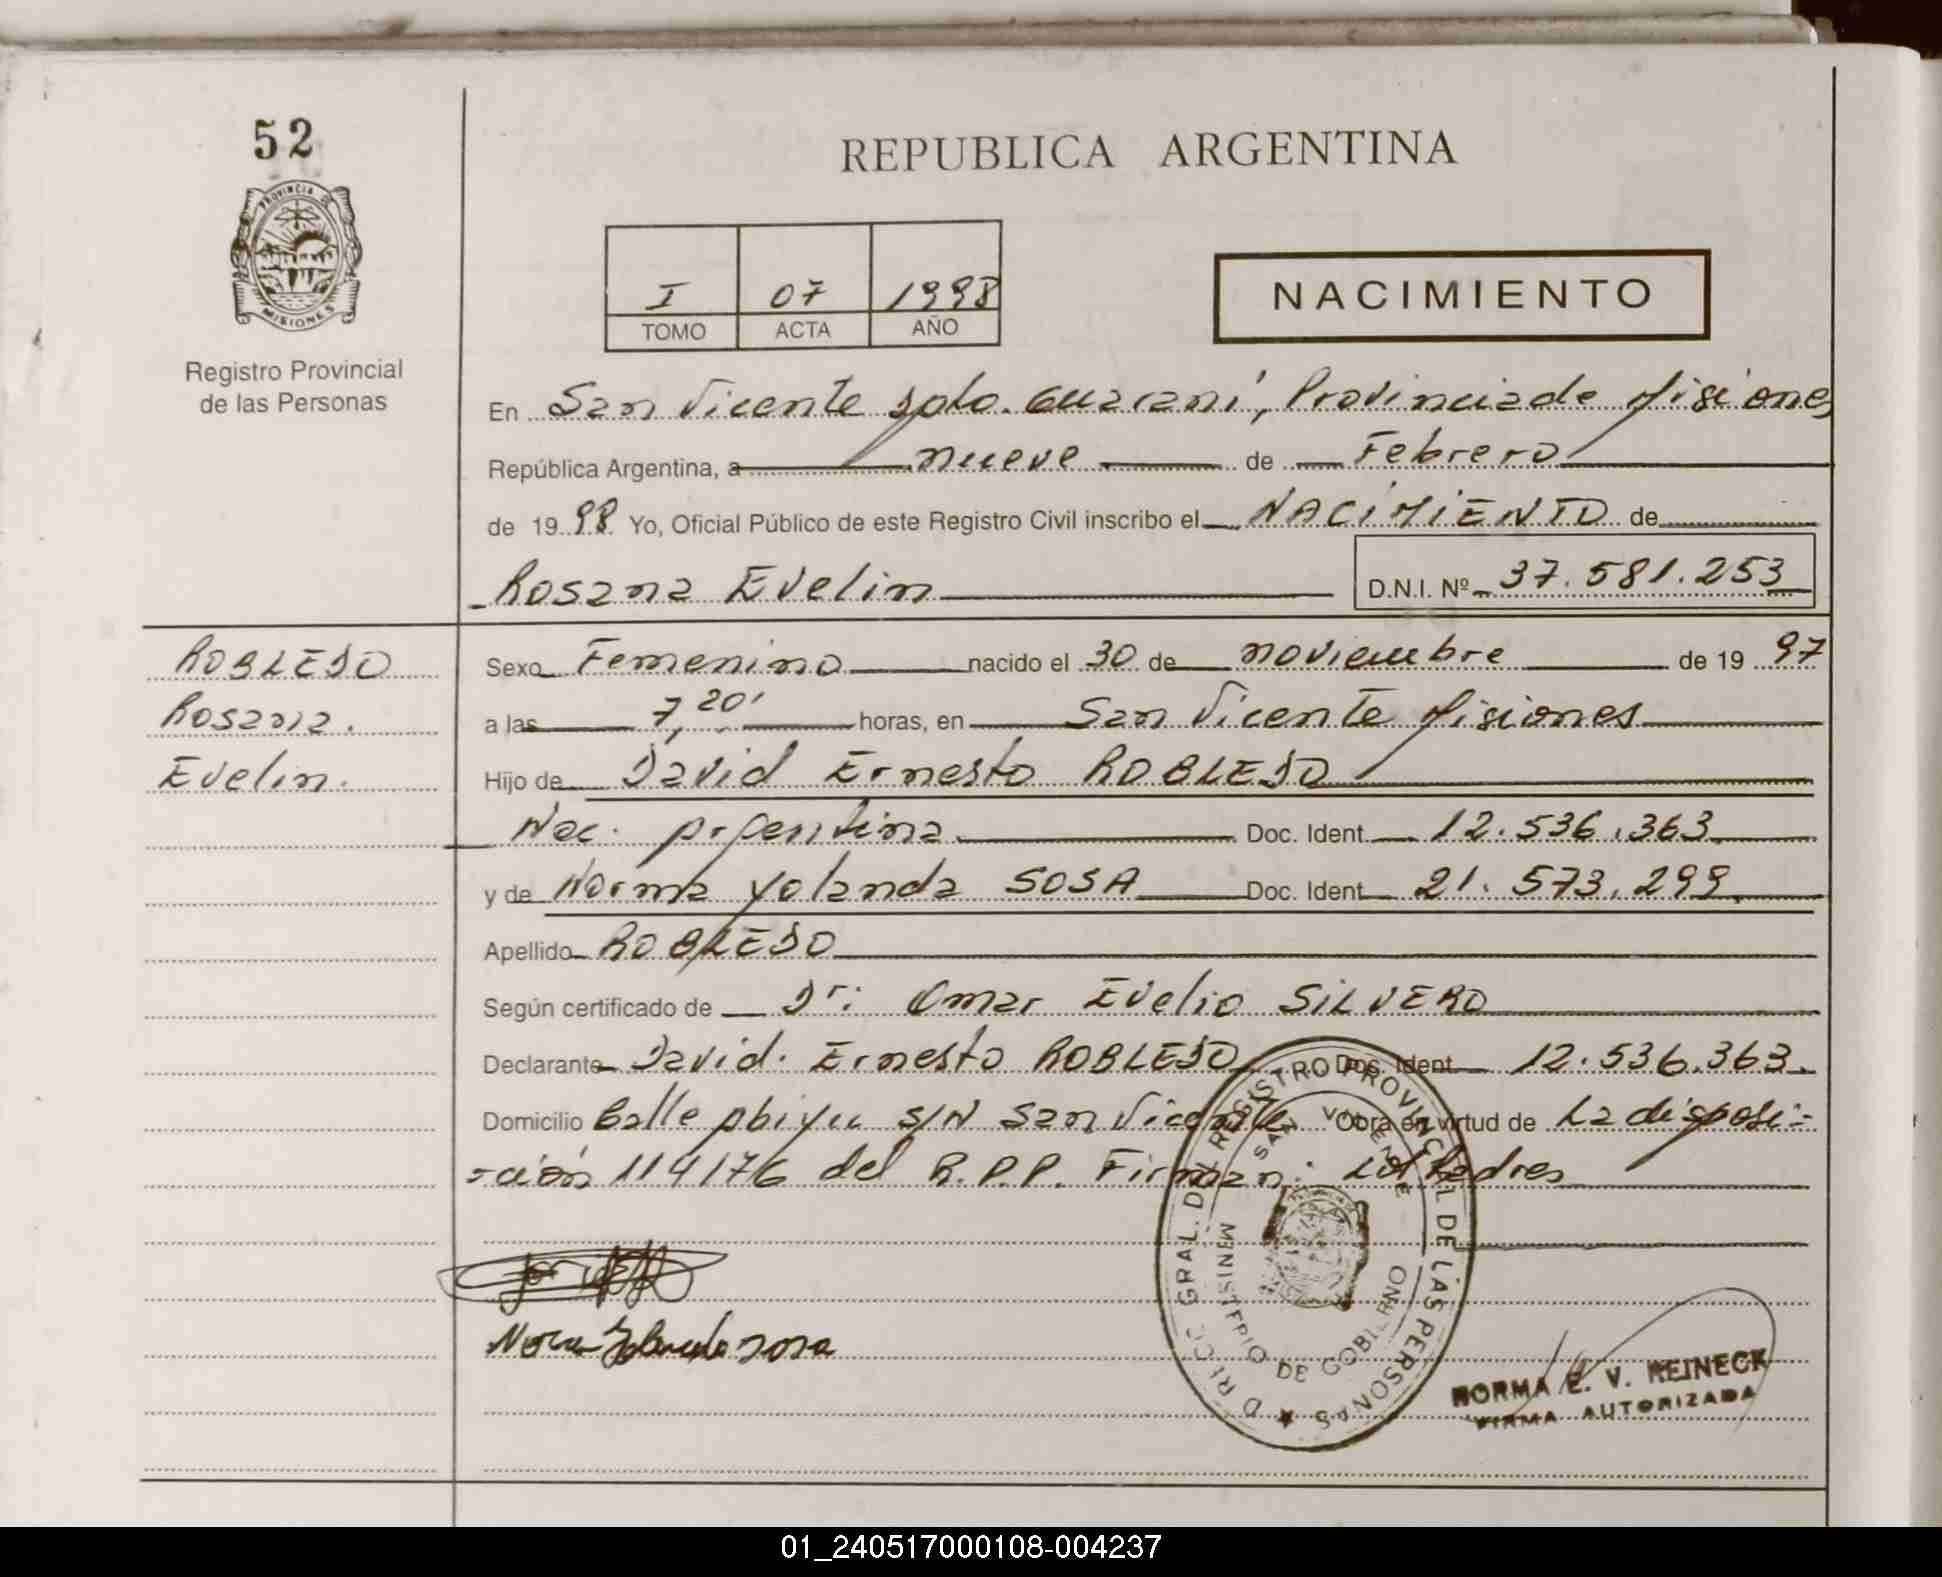 52
PROVINCIA DE
MISIONES
Registro Provincial
de las Personas
REPUBLICA ARGENTINA
I 07 1998
TOMO ACTA AÑO
NACIMIENTO
En San Vicente Dpto. Guaraní, Provincia de Misiones
República Argentina, a nueve de Febrero
de 1998 Yo, Oficial Público de este Registro Civil inscribo el NACIMIENTO de
Rosana Evelin D.N.I. Nº 37.581.253
ROBLEDO
Rosana.
Evelin.
Sexo Femenino nacido el 30 de noviembre de 1997
a las 7,20' horas, en San Vicente Misiones
Hijo de David Ernesto ROBLEDO
Nac. Argentina Doc. Ident. 12.536.363
y de Norma Yolanda SOSA Doc. Ident. 21.573.299
Apellido ROBLEDO
Según certificado de Dr: Omar Evelio SILVERO
Declarante David Ernesto ROBLEDO Doc. Ident. 12.536.363.
Domicilio Calle Abiyu S/N San Vicente Obra en virtud de La disposi-
-ción 114/76 del R.P.P. Firman: Los Padres
D RECC GRAL. DEL REGISTRO PROVINCIAL DE LAS PERSONAS
SAN VICENTE
MINISTERIO DE GOBIERNO
Norma Yolanda sosa
NORMA E. V. REINECK
FIRMA AUTORIZADA
01_240517000108-004237